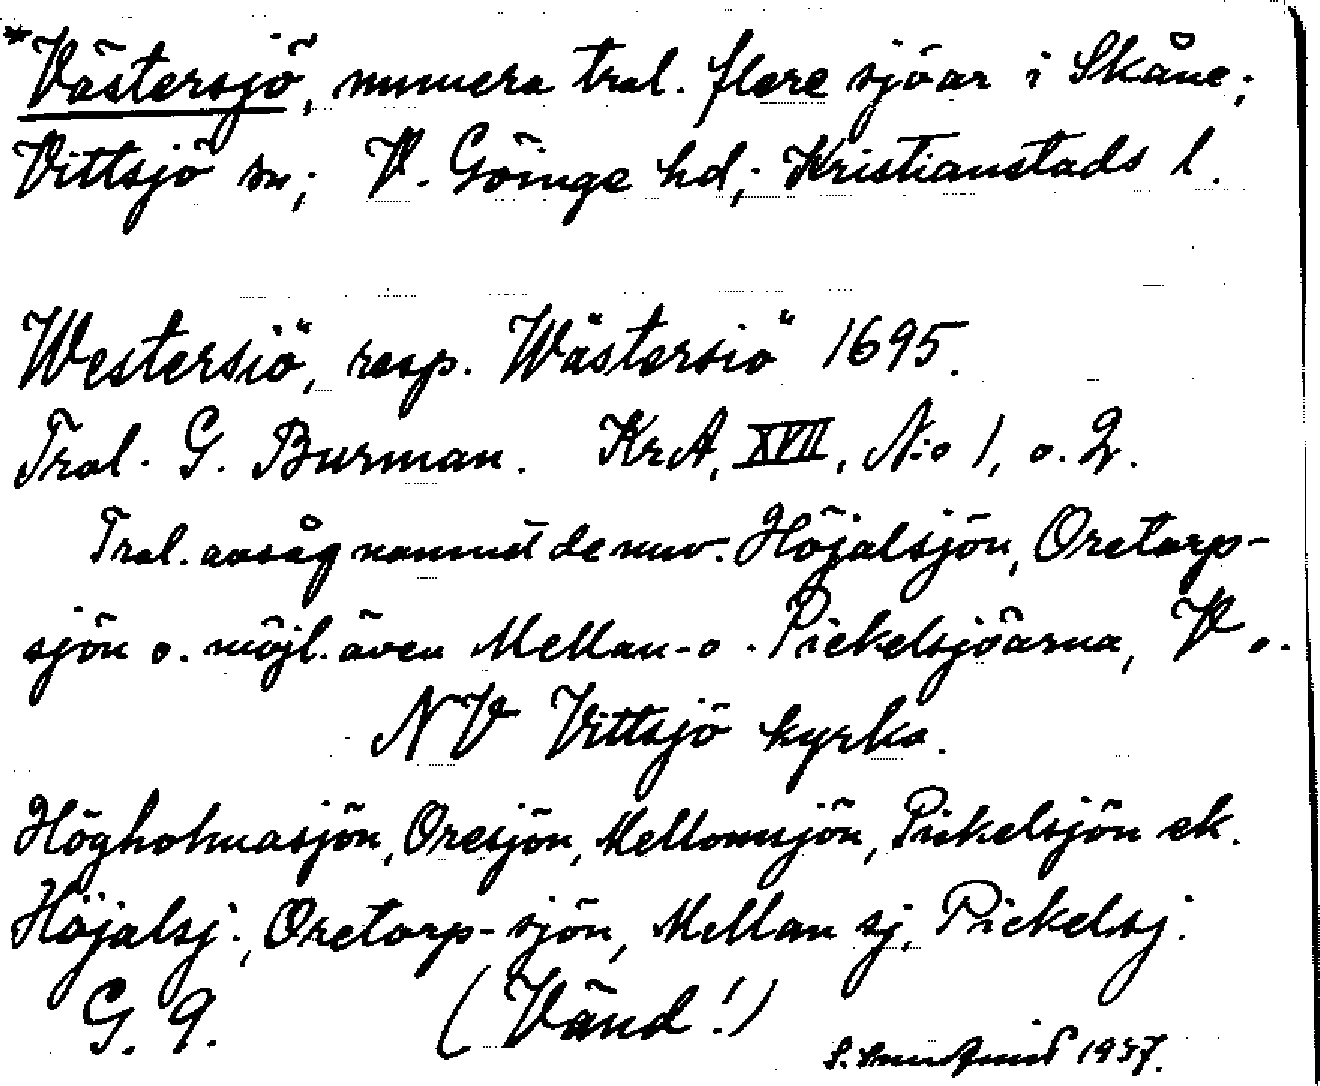 *Västersjö, numera trol. flere sjöar i Skåne;
Vittsjö sn; V. Göinge hd; Kristianstads l.
Westersiö, resp. Wästersiö 1695.
Trol. G. Burman. KrA, XVII, N:o 1, o. 2.
Trol. avsåg namnet de nuv. Höjalsjön, Oretorp-
sjön o. möjl. även Mellan- o. Pickelsjöarna, V o.
NV Vittsjö kyrka.
Högholmasjön, Oresjön, Mellomsjön, Pickelsjön ek.
Höjalsj., Oretorp-sjön, Mellan sj, Pickelsj.
G. 9. (Vänd!)
S. 1937.